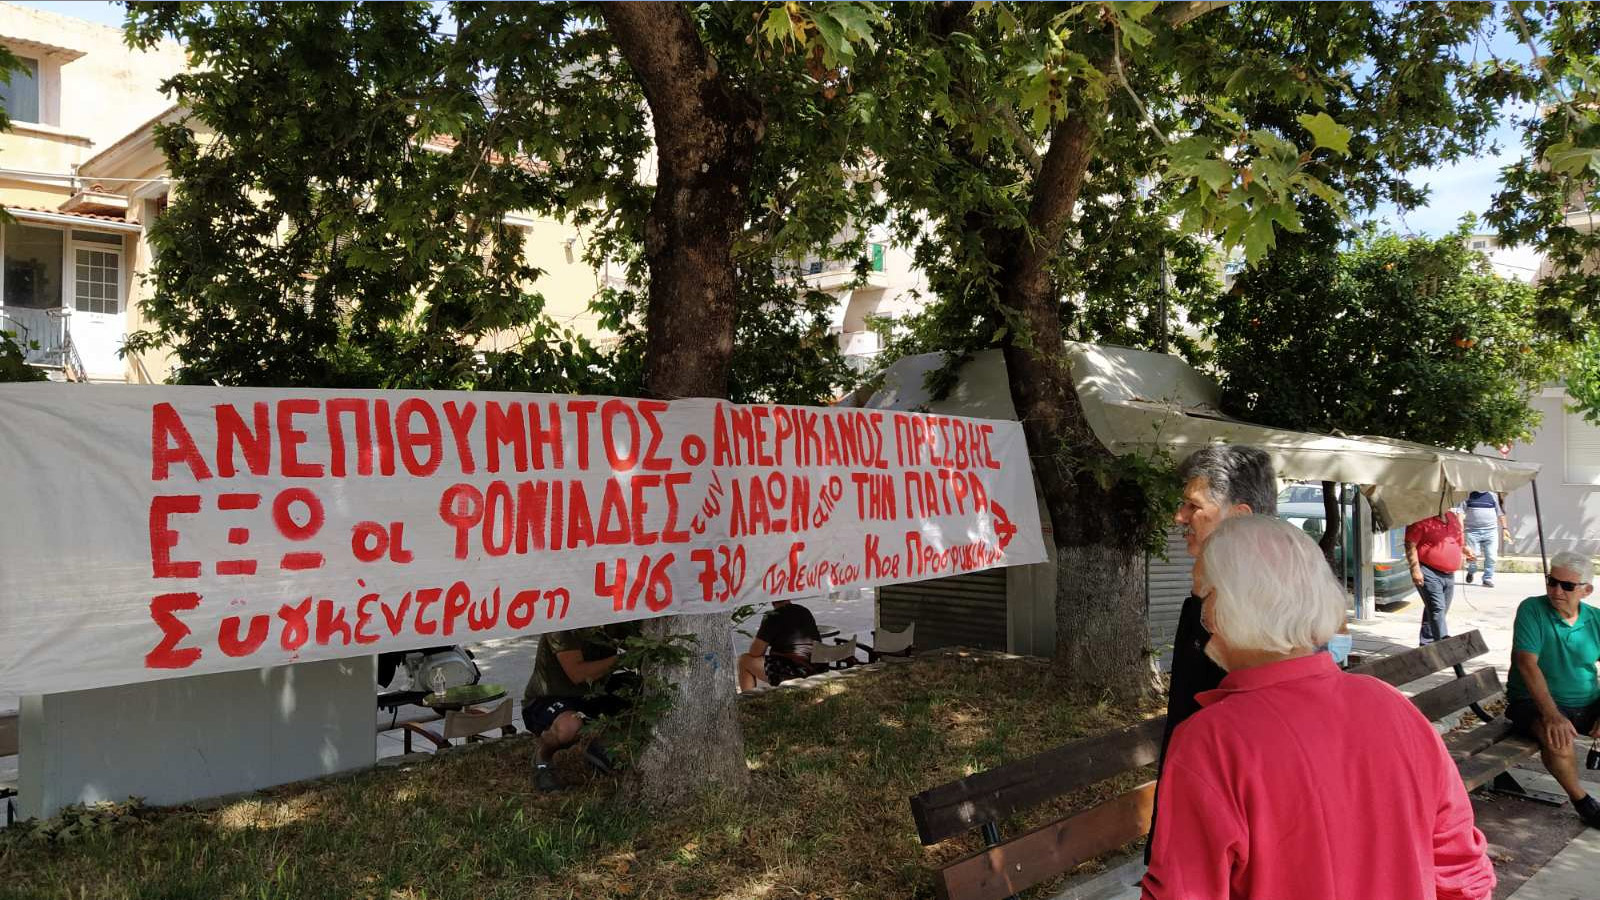 ΑΝΕΠΙΘΥΜΗΤΟΣ ο ΑΜΕΡΙΚΑΝΟΣ ΠΡΕΣΒΗΣ
ΕΞΩ οι ΦΟΝΙΑΔΕΣ των ΛΑΩΝ απο ΤΗΝ ΠΑΤΡΑ
Συγκέντρωση 4/6 7.30 Πλ. Γεωργίου Κατ Προσφυγικών